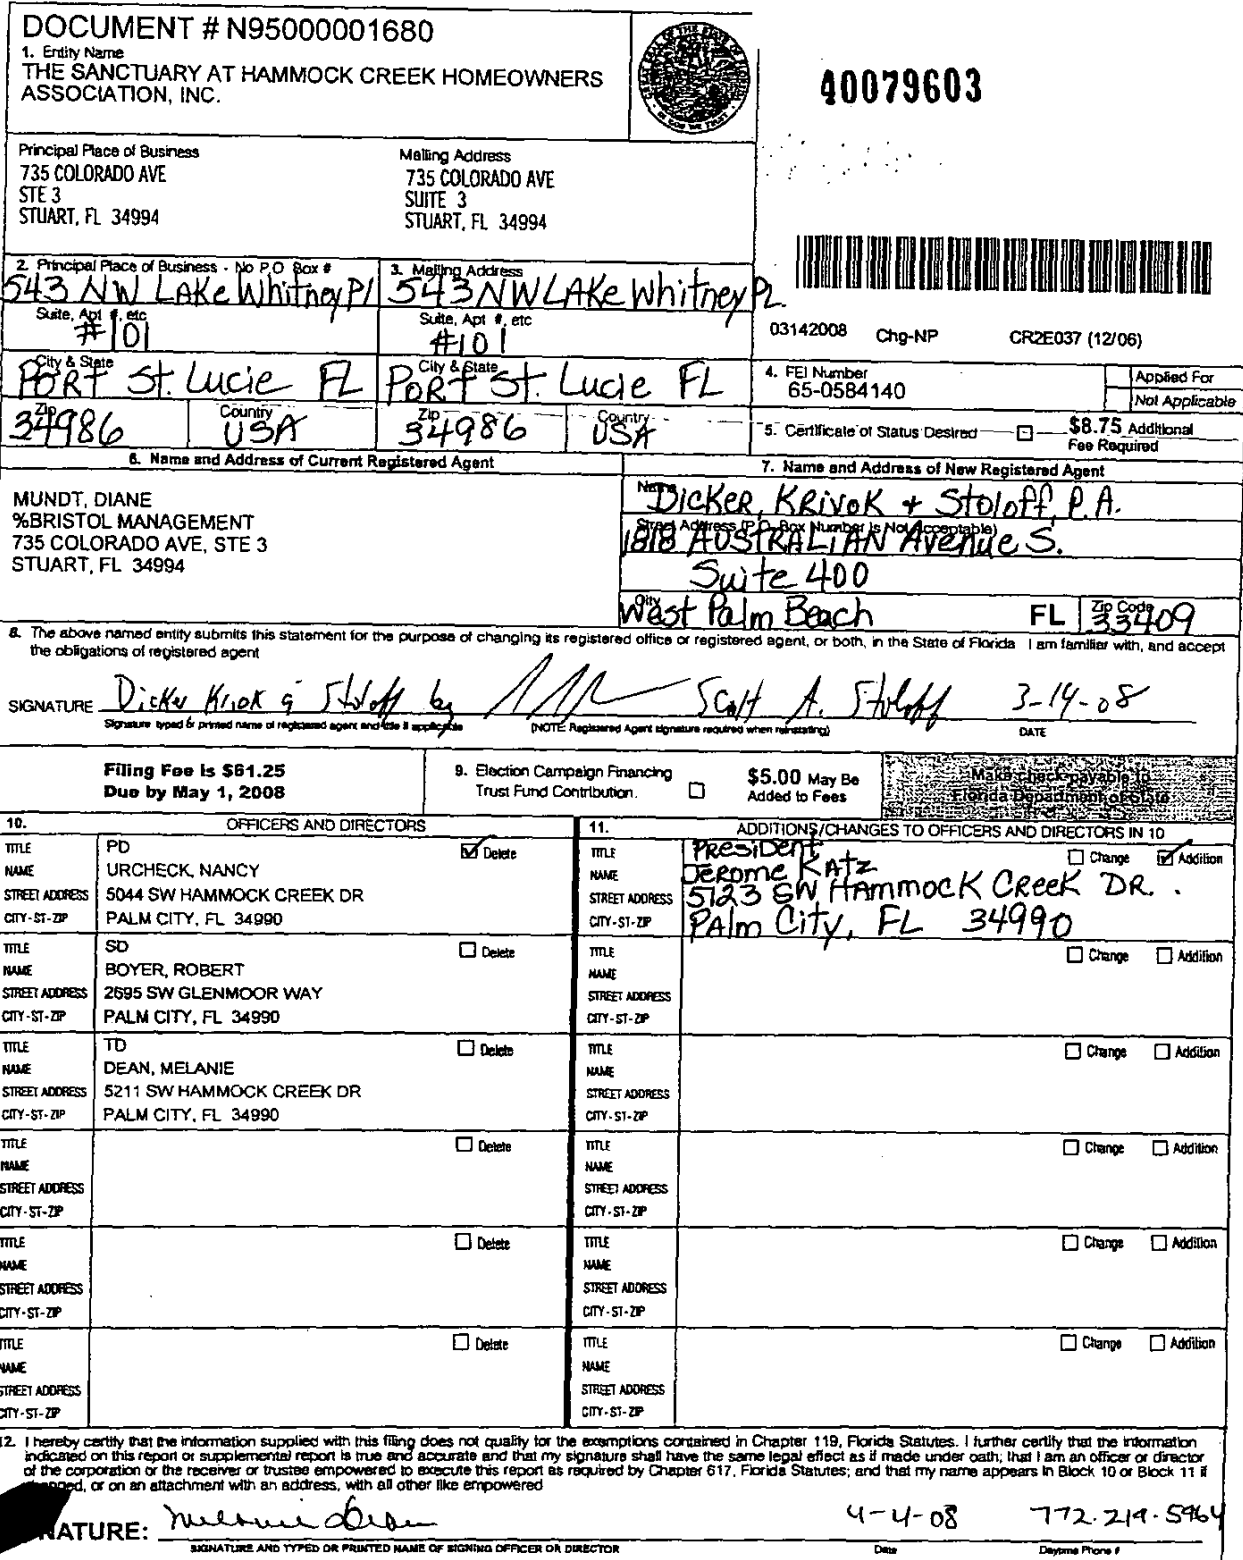 DOCUMENT # N95000001680
1. Entity Name
THE SANCTUARY AT HAMMOCK CREEK HOMEOWNERS
ASSOCIATION, INC.
40079603
Principal Place of Business
735 COLORADO AVE
STE 3
STUART, FL 34994
Mailing Address
735 COLORADO AVE
SUITE 3
STUART, FL 34994
2. Principal Place of Business - No P.O. Box #
543 NW LAKE Whitney Pl
Suite, Apt #, etc
#101
City & State
PORT St. Lucie FL
Zip
34986
Country
USA
3. Mailing Address
543 NW LAKE Whitney PL.
Suite, Apt #, etc
#101
City & State
PORT St. Lucie FL
Zip
34986
Country
USA
03142008 Chg-NP CR2E037 (12/06)
4. FEI Number
65-0584140
Applied For
Not Applicable
5. Certificate of Status Desired
$8.75 Additional
Fee Required
6. Name and Address of Current Registered Agent
MUNDT, DIANE
%BRISTOL MANAGEMENT
735 COLORADO AVE, STE 3
STUART, FL 34994
7. Name and Address of New Registered Agent
Name
Dicker, KRIVOK + Stoloff, P.A.
Street Address (P.O. Box Number Is Not Acceptable)
1818 AUSTRALIAN Avenue S.
Suite 400
City
West Palm Beach
FL
Zip Code
33409
8. The above named entity submits this statement for the purpose of changing its registered office or registered agent, or both, in the State of Florida I am familiar with, and accept
the obligations of registered agent
SIGNATURE Dicker Krivok & Stoloff by Scott A. Stoloff 3-14-08
Signature typed or printed name of registered agent and title if applicable
(NOTE Registered Agent signature required when reinstating)
DATE
Filing Fee is $61.25
Due by May 1, 2008
9. Election Campaign Financing
Trust Fund Contribution.
$5.00 May Be
Added to Fees
Make check payable to
Florida Department of State
10. OFFICERS AND DIRECTORS
TITLE PD Delete
NAME URCHECK, NANCY
STREET ADDRESS 5044 SW HAMMOCK CREEK DR
CITY-ST-ZIP PALM CITY, FL 34990
TITLE SD Delete
NAME BOYER, ROBERT
STREET ADDRESS 2695 SW GLENMOOR WAY
CITY-ST-ZIP PALM CITY, FL 34990
TITLE TD Delete
NAME DEAN, MELANIE
STREET ADDRESS 5211 SW HAMMOCK CREEK DR
CITY-ST-ZIP PALM CITY, FL 34990
TITLE Delete
NAME
STREET ADDRESS
CITY-ST-ZIP
TITLE Delete
NAME
STREET ADDRESS
CITY-ST-ZIP
TITLE Delete
NAME
STREET ADDRESS
CITY-ST-ZIP
11. ADDITIONS/CHANGES TO OFFICERS AND DIRECTORS IN 10
TITLE President Change Addition
NAME Jerome Katz
STREET ADDRESS 5123 SW HAmmocK CReeK DR.
CITY-ST-ZIP PAlm City, FL 34990
TITLE Change Addition
NAME
STREET ADDRESS
CITY-ST-ZIP
TITLE Change Addition
NAME
STREET ADDRESS
CITY-ST-ZIP
TITLE Change Addition
NAME
STREET ADDRESS
CITY-ST-ZIP
TITLE Change Addition
NAME
STREET ADDRESS
CITY-ST-ZIP
TITLE Change Addition
NAME
STREET ADDRESS
CITY-ST-ZIP
12. I hereby certify that the information supplied with this filing does not qualify for the exemptions contained in Chapter 119, Florida Statutes. I further certify that the information
indicated on this report or supplemental report is true and accurate and that my signature shall have the same legal effect as if made under oath; that I am an officer or director
of the corporation or the receiver or trustee empowered to execute this report as required by Chapter 617, Florida Statutes; and that my name appears in Block 10 or Block 11 if
nged, or on an attachment with an address, with all other like empowered
NATURE: Melanie Dean 4-4-08 772.219.5964
SIGNATURE AND TYPED OR PRINTED NAME OF SIGNING OFFICER OR DIRECTOR
Date
Daytime Phone #